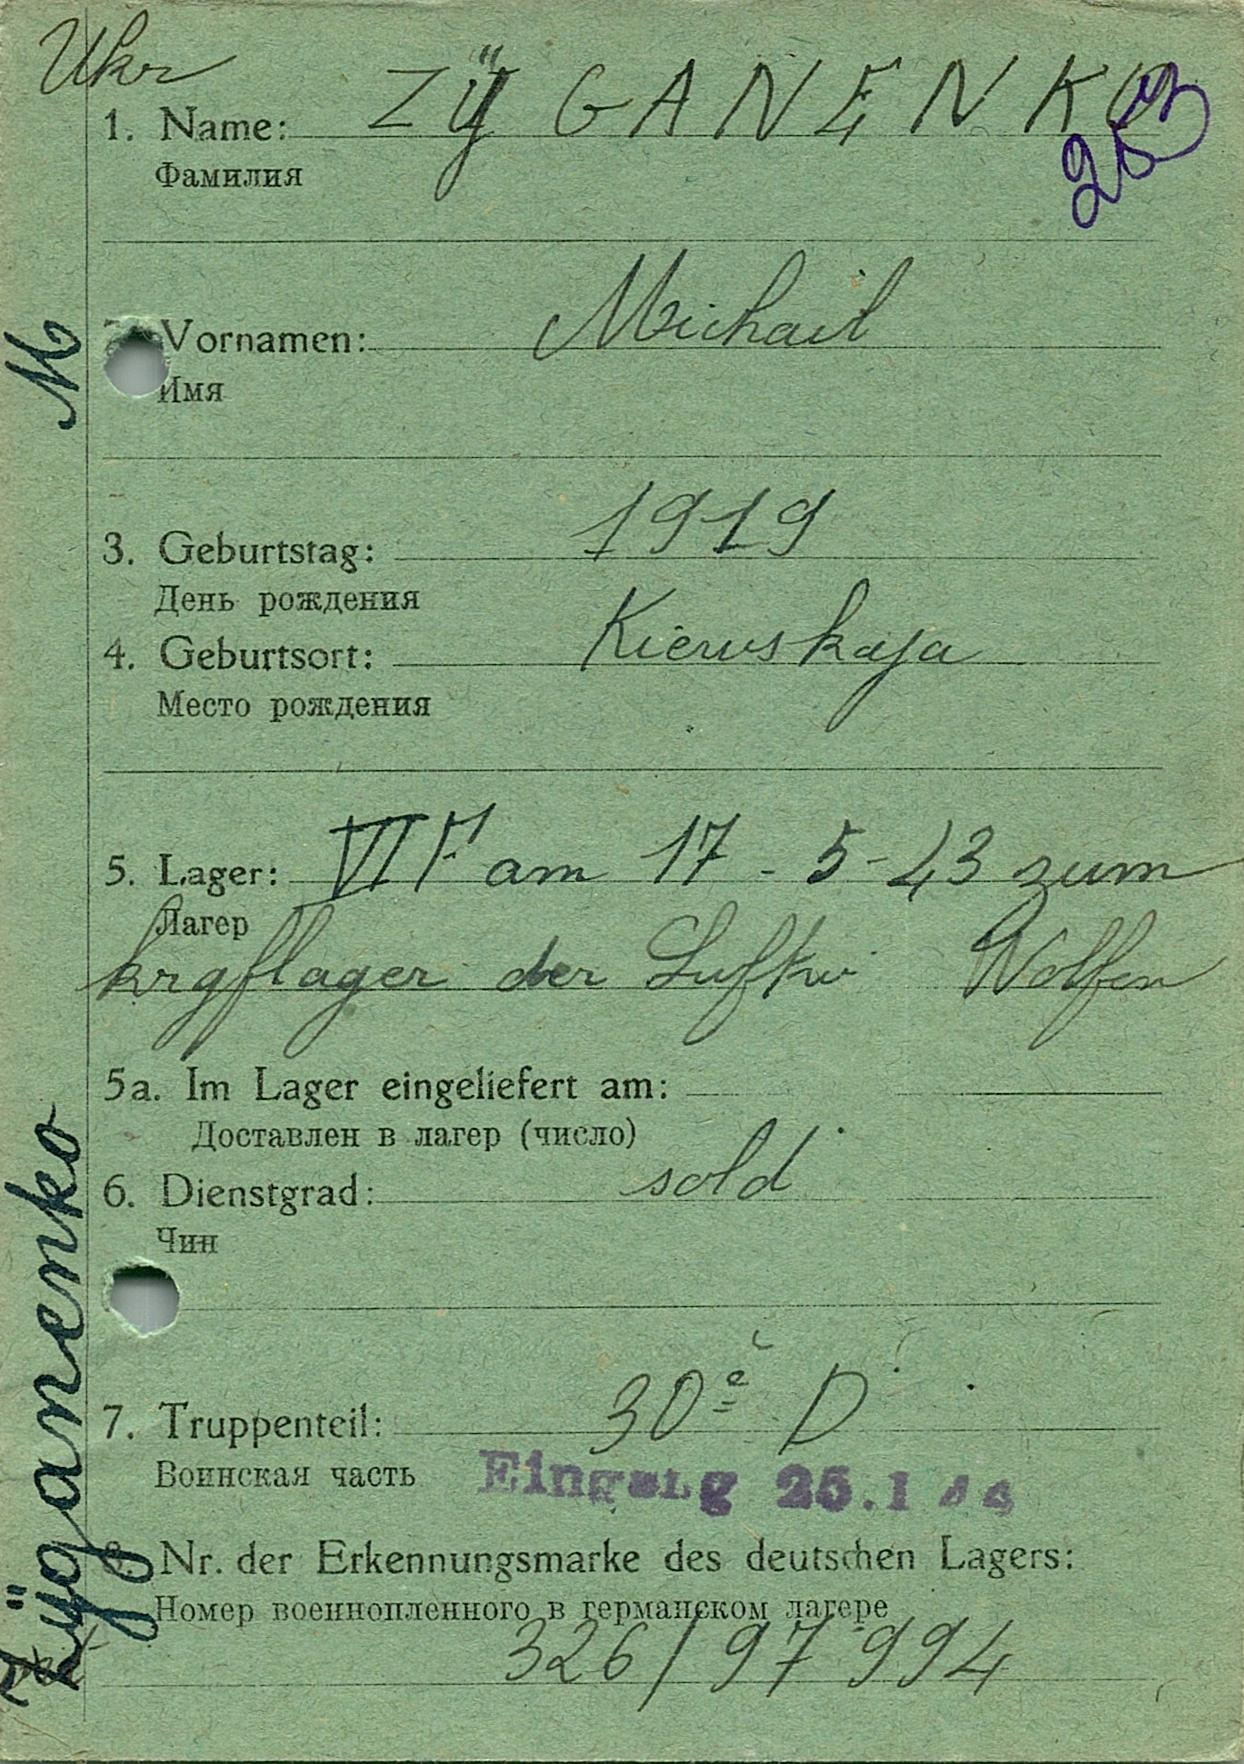 Ukr
1. Name: ZŸGANENKO
Фамилия
253
Vornamen: Michail
Имя
M
3. Geburtstag: 1919
День рождения
4. Geburtsort: Kiewskaja
Место рождения
5. Lager: VI F am 17-5-43 zum
Лагер
krgflager der Luftw Wolfen
5a. Im Lager eingeliefert am:
Доставлен в лагер (число)
6. Dienstgrad: sold
Чин
7. Truppenteil: 30e D
Воинская часть
Eingang 25.1 44
8. Nr. der Erkennungsmarke des deutschen Lagers:
Номер военнопленного в германском лагере
326/97994
Zÿganenko